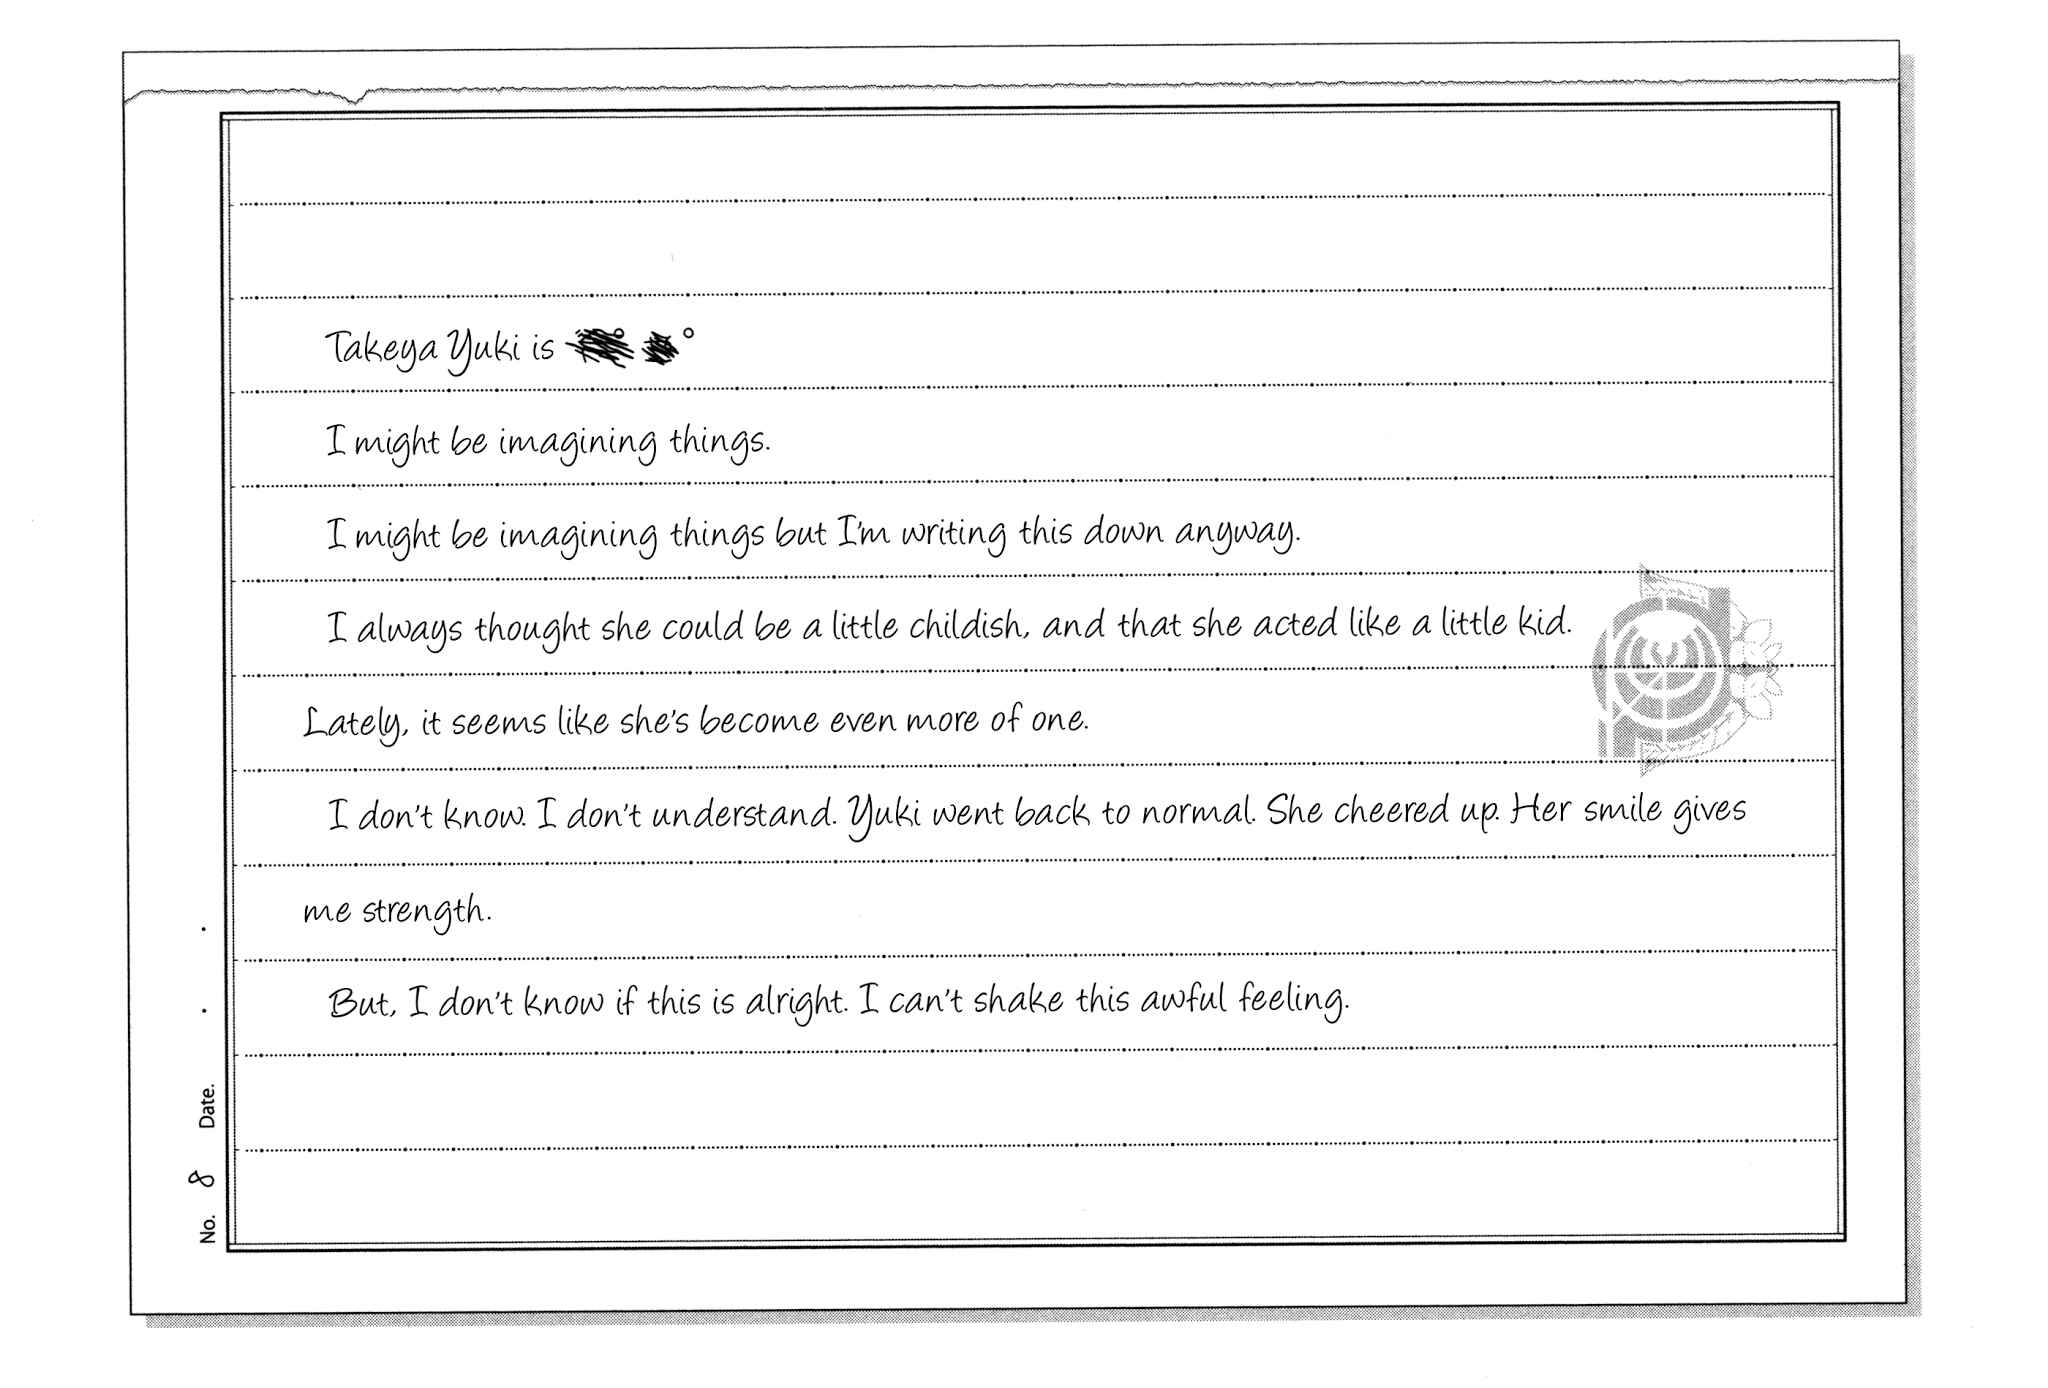 Takeya Yuki is
I might be imagining things.
I might be imagining things but I'm writing this down anyway.
I always thought she could be a little childish, and that she acted like a little kid.
Lately, it seems like she's become even more of one.
I don't know. I don't understand. Yuki went back to normal. She cheered up. Her smile gives
me strength.
But, I don't know if this is alright. I can't shake this awful feeling.
No. 8 Date. . .